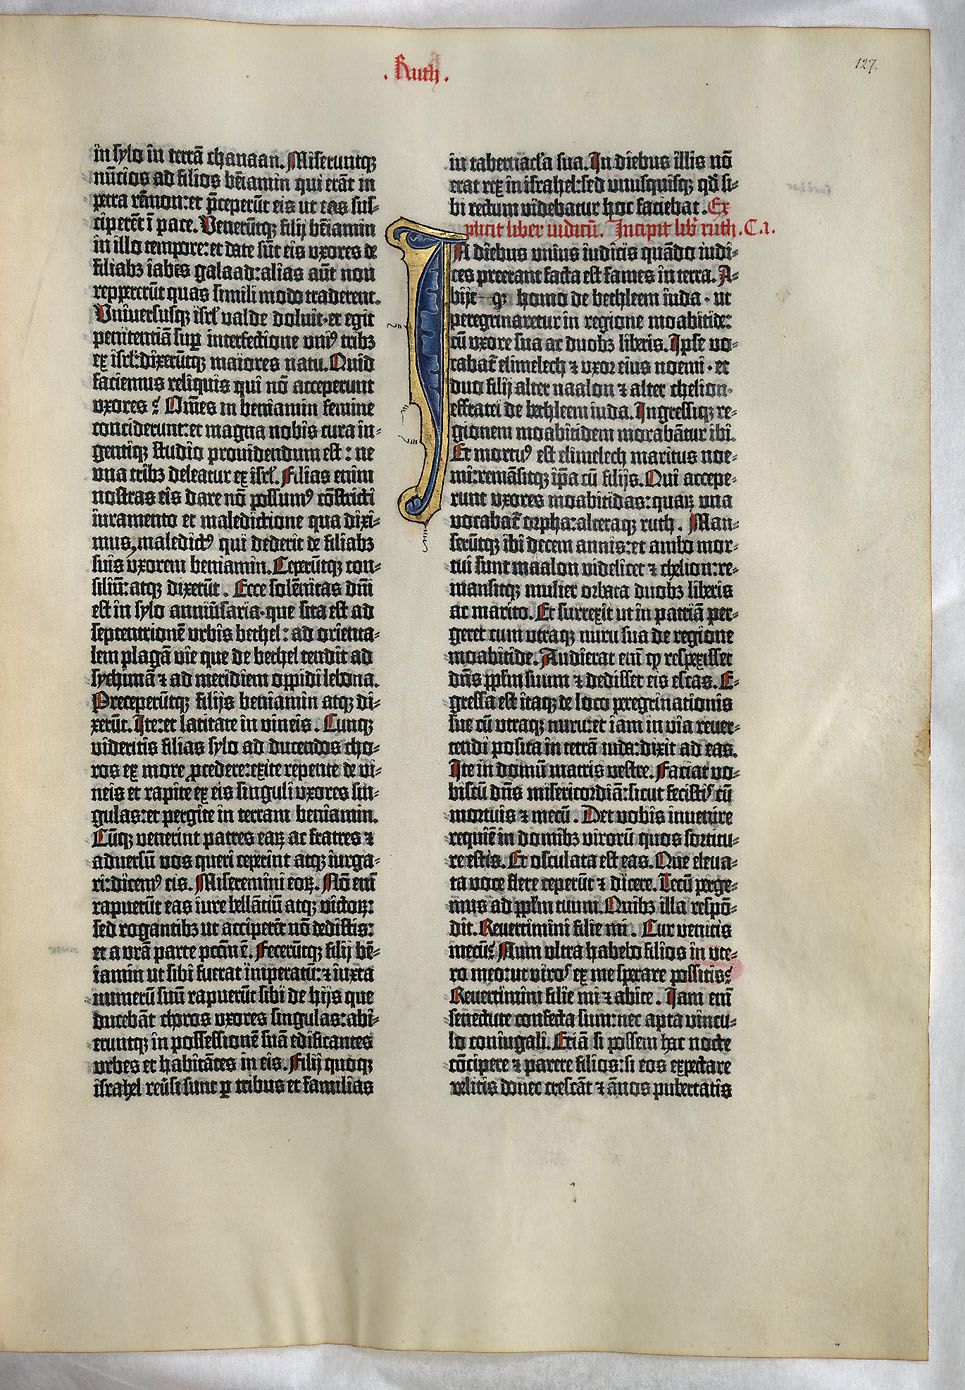 . Ruth .
127.
in sylo in terrā chanaan. Miseruntqꝫ
nūcios ad filios bēiamin qui erāt in
petra rēmon: et p̄ceperūt eis ut eas sus-
ciperēt ī pace. Venerūtqꝫ filij bēiamin
in illo tempore: et date sūt eis uxores de
filiabꝫ iabes galaad: alias aūt non
reppererūt quas simili modo traderent.
Universusqꝫ isrl̓ valde doluit · et egit
penitentiā sup̄ interfectione uniꝰ tribꝫ
ex isrl̓: dixerūtqꝫ maiores natu. Quid
faciemus reliquis qui nō acceperunt
uxores? Om̄es in beniamin femine
conciderunt: et magna nobis cura in-
gentiqꝫ studio providendum est: ne
una tribꝫ deleatur ex isrl̓. Filias enim
nostras eis dare nō possumꝰ cōstricti
iuramento et maledictione qua dixi-
mus, maledictꝰ qui dederit de filiabꝫ
suis uxorem beniamin. Ceperūtqꝫ con-
siliū: atqꝫ dixerūt. Ecce solēnitas dn̄i
est in sylo anniūsaria · que sita est ad
septentrionē urbis bethel: ad orienta-
lem plagā vie que de bethel tendit ad
sychimā ⁊ ad meridiem oppidi lebona.
Preceperūtqꝫ filijs beniamin atqꝫ di-
xerūt. Ite: et latitate in vineis. Cunqꝫ
videritis filias sylo ad ducendos cho-
ros ex more ꝓcedere: exite repente de vi-
neis et rapite ex eis singuli uxores sin-
gulas: et pergite in terram beniamin.
Cūqꝫ venerint patres eaꝝ ac fratres ⁊
adversū vos queri ceperint atqꝫ iurga-
ri: dicemꝰ eis. Miseremini eoꝝ. Nō enī
rapuerūt eas iure bellātiū atqꝫ victoꝝ:
sed rogantibꝫ ut acciperēt nō dedistis:
et a vr̄a parte pctm̄ ē. Fecerūtqꝫ filij bē-
iamin ut sibi fuerat imperatū: ⁊ iuxta
numerū suū rapuerūt sibi de hijs que
ducebāt choros uxores singulas: abi-
eruntqꝫ in possessionē suā edificantes
urbes et habitātes in eis. Filij quoqꝫ
israhel reūsi sunt ꝑ tribus et familias
in tabernacl̓a sua. In diebus illis nō
erat rex in israhel: sed unusquisqꝫ qd̄ si-
bi rectum videbatur hoc faciebat. Ex-
plicit liber iudicū. Incipit lib̓ ruth. C. i.
In diebus unius iudicis quādo iudi-
ces preerant facta est fames in terra. A-
bijt qꝫ homo de bethleem iuda · ut
peregrinaretur in regione moabitide:
cū uxore sua ac duobꝫ liberis. Ipse vo-
cabat̄ elimelech ⁊ uxor eius noemi · et
duo filij alter naalon ⁊ alter chelion ·
effratei de bethleem iuda. Ingressiqꝫ re-
gionem moabitidem morabātur ibi.
Et mortuꝰ est elimelech maritus noe-
mi: remāsitqꝫ ip̄a cū filijs. Qui accepe-
runt uxores moabitidas: quaꝝ una
vocabat̄ orpha: altera qꝫ ruth. Man-
serūtqꝫ ibi decem annis: et ambo mor-
tui sunt maalon videlicet ⁊ chelion: re-
mansitqꝫ mulier orbata duobꝫ liberis
ac marito. Et surrexit ut in patriā per-
geret cum utraqꝫ nuru sua de regione
moabitide. Audierat enī ꝙ respexisset
dn̄s pplm̄ suum ⁊ dedisset eis escas. E-
gressa est itaqꝫ de loco peregrinationis
sue cū utraqꝫ nuru: et iam in via rever-
tendi posita in terrā iuda: dixit ad eas.
Ite in domū matris vestre. Faciat vo-
biscū dn̄s misericordiā: sicut fecistiˢ cū
mortuis ⁊ mecū. Det vobis invenire
requiē in domibꝫ virorū quos sortitu-
re estis. Et osculata est eas. Que eleva-
ta voce flere ceperūt ⁊ dicere. Tecū perge-
mus ad pplm̄ tuum. Quibꝫ illa respō-
dit. Revertimini filie mi. Cur venitis
mecū? Num ultra habebo filios in ute-
ro meo: ut viroˢ ex me sperare possitis?
Revertimini filie mi ⁊ abite. Iam enī
senectute confecta sum: nec apta vincu-
lo coniugali. Etiā si possem hac nocte
cōcipere ⁊ parere filios: si eos expectare
velitis donec crescāt ⁊ ānos pubertatis